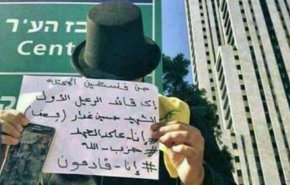 כז העיר
Cent
من فلسطين المحتله
الى قائد الرعيل الاول
الشهيد حسين غدار
إنا - على العهد
حزب - الله
# إنا - قادمون #